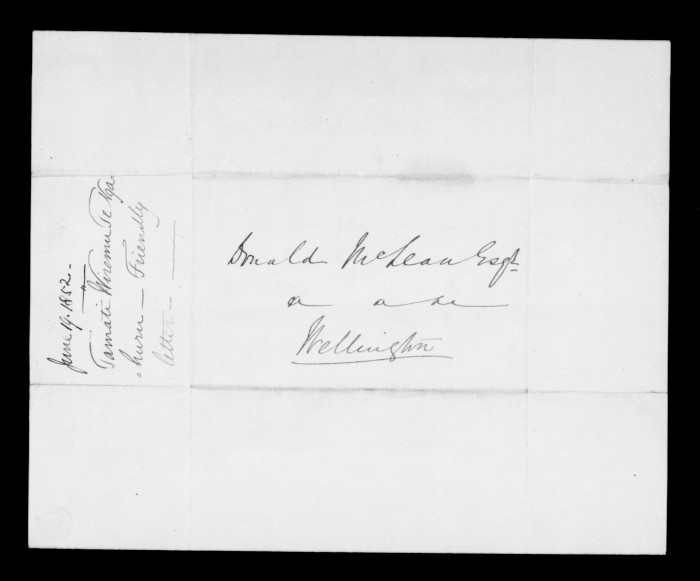 June 19. 1852.-
Tamati Wiremu Te Nga
-huru — Friendly
letter. —
Donald McLean Esqr
a a ae
Wellington